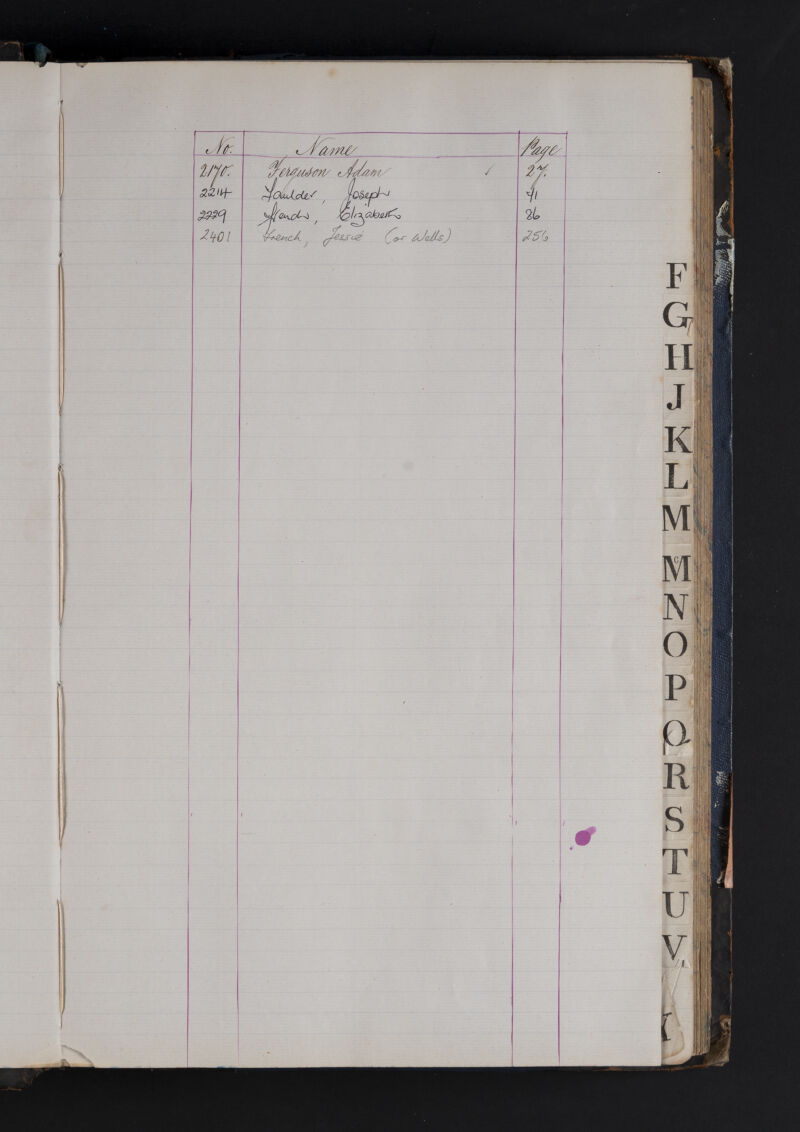 No. Name Page
2170. Ferguson Adam 27.
2214 Faulder, Joseph 71
2229 Elizabeth 86
2401 French, Jessie (or Wells) 256
F
G
H
J
K
L
M
Mc
N
O
P
Q
R
S
T
U
V